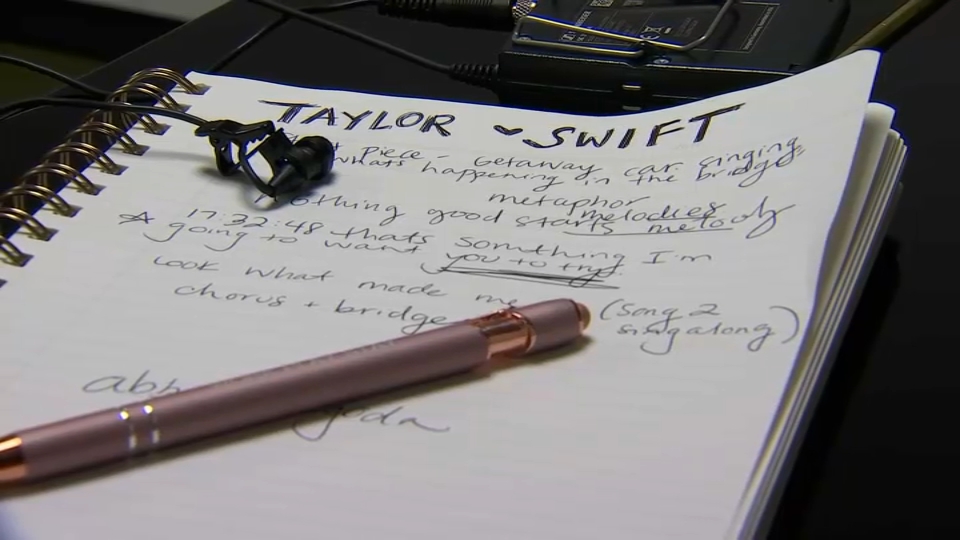 TAYLOR SWIFT
Piece - Getaway car singing
whats happening in the bridge
metaphor
melodies
nothing good starts melo
☆ 17:32:48 thats somthing I'm
going to want you to try
Look what made me
chorus + bridge
(Song 2
singalong)